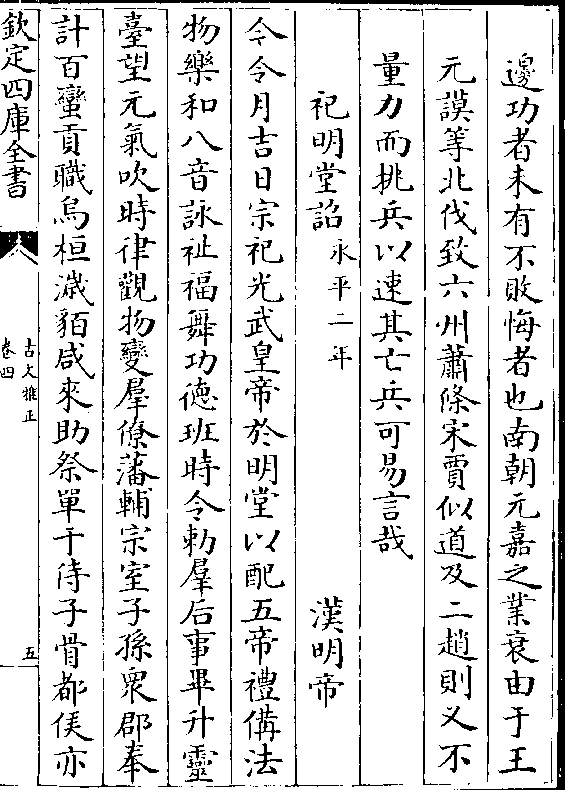 邊功者未有不敗悔者也南朝元嘉之業衰由于王
元謨等北伐致六州蕭條宋賈似道及二趙則又不
量力而挑兵以速其亡兵可易言哉
祀明堂詔永平二年 漢明帝
今令月吉日宗祀光武皇帝於明堂以配五帝禮備法
物樂和八音詠祉福舞功徳班時令勅羣后事畢升靈
臺望元氣吹時律觀物變羣僚藩輔宗室子孫衆郡奉
計百蠻貢職烏桓濊貊咸來助祭單于侍子骨都侯亦
欽定四庫全書
古文雅正
卷四
五